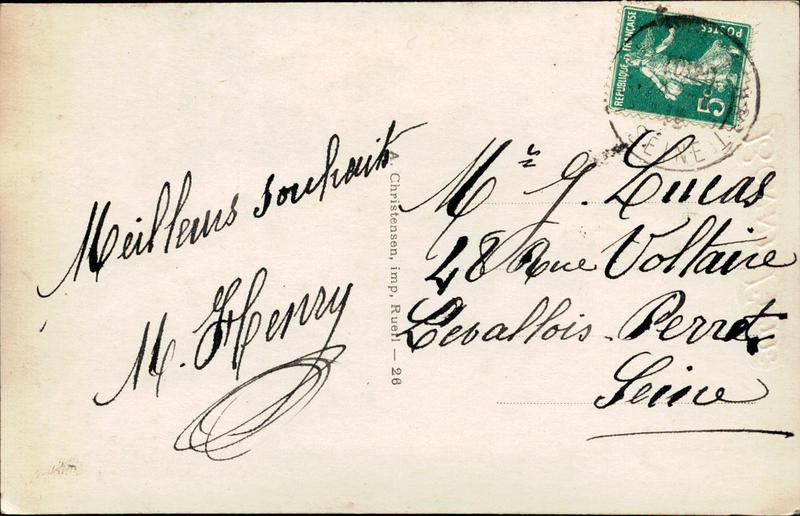 Meilleurs souhaits
M. Henry
A. Christensen, imp, Rueil — 26
REPUBLIQUE FRANÇAISE
POSTES
5c
SEINE
Mr G. Lucas
48 Rue Voltaire
Levallois-Perret
Seine